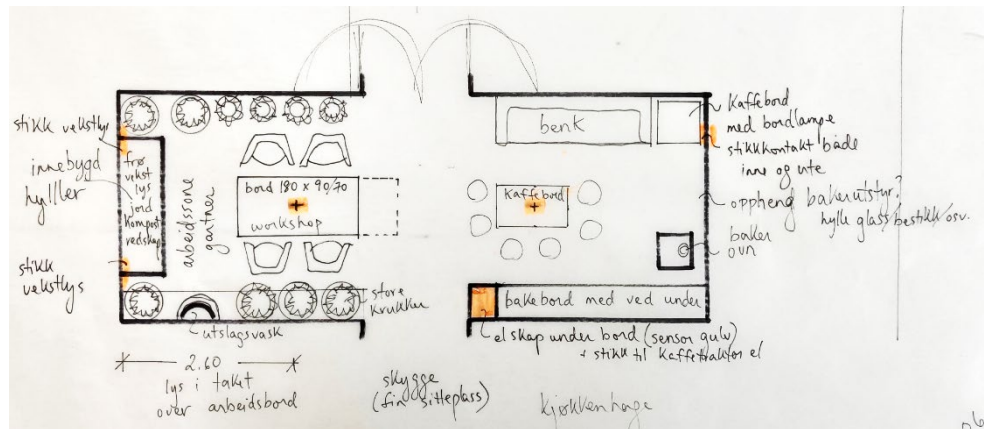 stikk vekstlys
innebygd
hyller
stikk
vekstlys
frø
vekst
lys
jord
kompost
redskap
arbeidssone
gartner
bord 180 x 90/70
workshop
store
krukker
utslagsvask
2.60
lys i taket
over arbeidsbord
skygge
(fin sitteplass)
kjøkkenhage
benk
Kaffebord
bakebord med ved under
el skap under bord (sensor gulv)
+ stikk til kaffetrakter el
Kaffebord
med bordlampe
stikkkontakt både
inne og ute
oppheng bakerutstyr?
hylle glass/bestikk/osv.
baker
ovn